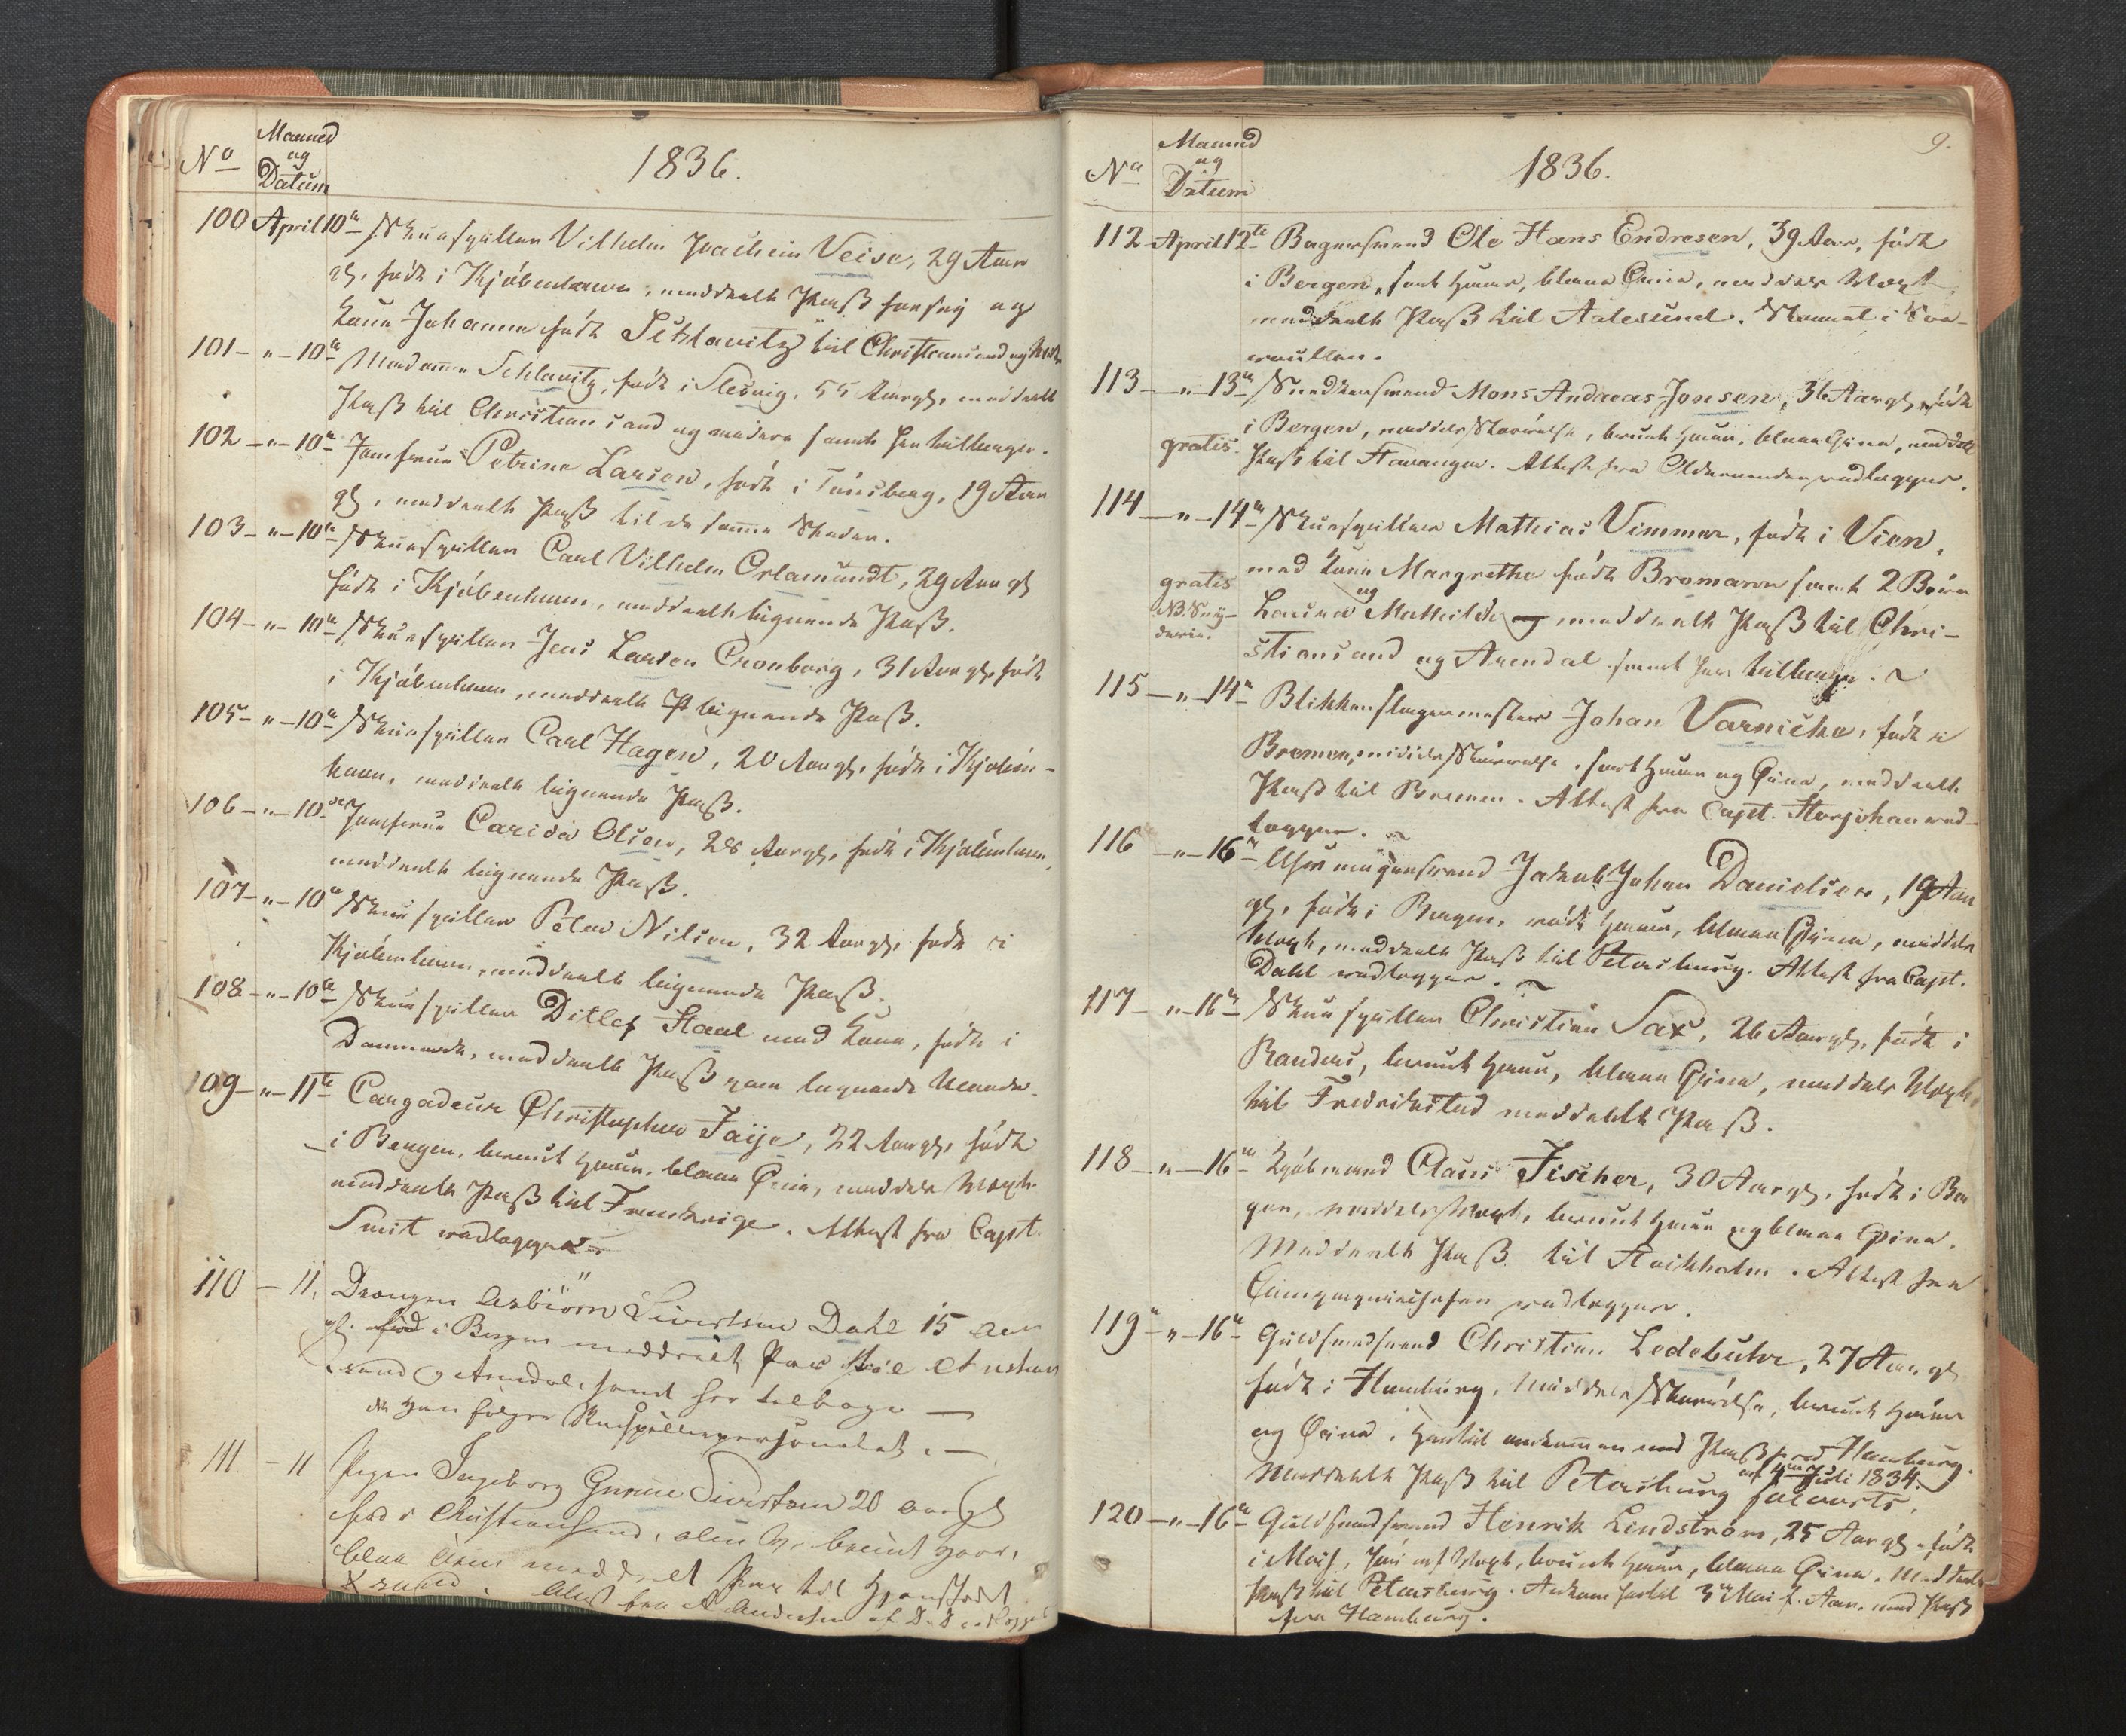 No
Maaned
og
Datum
1836.
100 April 10de Skuespiller Vilhelm Joachim Veise, 29 Aar
gl. født i Kjøbenhavn, meddeelt Pass for sig og
Kone Johanne født Schlavitz til Christiansand og
101 - " - 10de Madamme Schlavitz, født i Slesvig, 55 Aar gl. meddeelt
Pass til Christiansand og videre samt her tilbage.
102 - " - 10de Jomfrue Petrine Larsen, født i Tönsberg, 19 Aar
gl, meddeelt Pass til de samme Steder.
103 - " - 10de Skuespiller Carl Vilhelm Orlamundt, 29 Aar gl
født i Kjøbenhavn, meddeelt lignende Pass.
104 - " - 10de Skuespiller Jens Larsen Cronborg, 31 Aar gl, født
i Kjøbenhavn, meddeelt lignende Pass.
105 - " - 10de Skuespiller Carl Hagen, 20 Aar gl. født i Kjøben-
havn, meddeelt lignende Pass.
106 - " - 10de Jomfrue Olsen, 28 Aar gl, født i Kjøbenhavn,
meddeelt lignende Pass.
107 - " - 10de Skuespiller Peter Nilsen, 32 Aar gl, født i
Kjøbenhavn, meddeelt lignende Pass.
108 - " - 10de Skuespiller Ditlef Staal med Kone, født i
Danmark, meddeelt Pass paa lignende Maade.
109 - " - 11te Cargadeur Christopher Faije, 22 Aar gl, født
i Bergen, bruunt Haar, blaae Øine, middels Vext
meddeelt Pass til Frankrige. Attest fra Capt.
Smit vedlægger
110 - 11. Drengen Asbiörn Sivertsen Dahl 15 Aar
gl. fød i Bergen meddeelt Pas til Christian
sand og Arendal, samt her tilbage
da Han følger Skuespillerpersonalet. -
111 - 11 Pigen Ingeborg Sivertsen 20 aar gl
fød i Christiansand, bruunt Haar,
blaa Øine meddeelt Pas til
Attest fra
9.
No
Maaned
og
Datum
1836.
112 April 12te Bagersvend Ole Hans Endresen, 39 Aar, født
i Bergen, sort Haar, blaae Øine, middels Vext,
meddeelt Pass til Aalesund.
113 - " - 13de Snedkersvend Mons Andreas Jonsen, 36 Aar gl, født
i Bergen, middels Størrelse, bruunt Haar, blaae Øine, meddelt
gratis. Pass til Stavanger. Attest fra Oldermanden vedlægger.
114 - " - 14de Skuespiller Mathias Vimmer, født i Vien,
med Kone Margrethe født Bromaron samt 2 Børn
gratis
NB.
Laura og Mathilde og meddeelt Pass til Chri-
stiansand og Arendal samt her tilbage.
115 - " - 14de Blikkenslagermester Johan Varnicke, født i
Bremen, middels Størrelse, sort Haar og Øine, meddeelt
Pass til Bremen. Attest fra Capt. Storjohan ved-
lægger.
116 - " - 16de Uhrmagersvend Jakob Johan Danielsen, 19 Aar
gl, født i Bergen, rødt Haar, blaae Øine, middels
Vext, meddeelt Pass til Petersburg. Attest fra Capt.
Dahl vedlægger.
117 - " - 16de Skuespiller Christian Sax, 26 Aar gl, født i
Randers, bruunt Haar, blaae Øine, middels Vext,
til Fredrikstad meddeelt Pass.
118 - " - 16de Kjøbmand Claus Fischer, 30 Aar gl, født i Ber
gen, middels Vext, bruunt Haar og blaae Øine.
Meddeelt Pass til Stockholm. Attest fra
vedlægger.
119 - " - 16de Guldsmedsvend Christian Ledebuhr, 27 Aar gl
født i Hamburg, middels Størrelse, bruunt Haar
og Øine. Hertil ankommen med Pass fra Hamburg.
af Juli 1834.
Meddeelt Pass til Petersburg søeværts.
120 - " - 16de Guldsmedsvend Henrik Lindström, 25 Aar gl, født
i Vext, bruunt Haar, blaae Øine. Meddeelt
Pass til Petersburg. Ankom hertil 3de Mai f. Aar. med Pass
fra Hamburg.